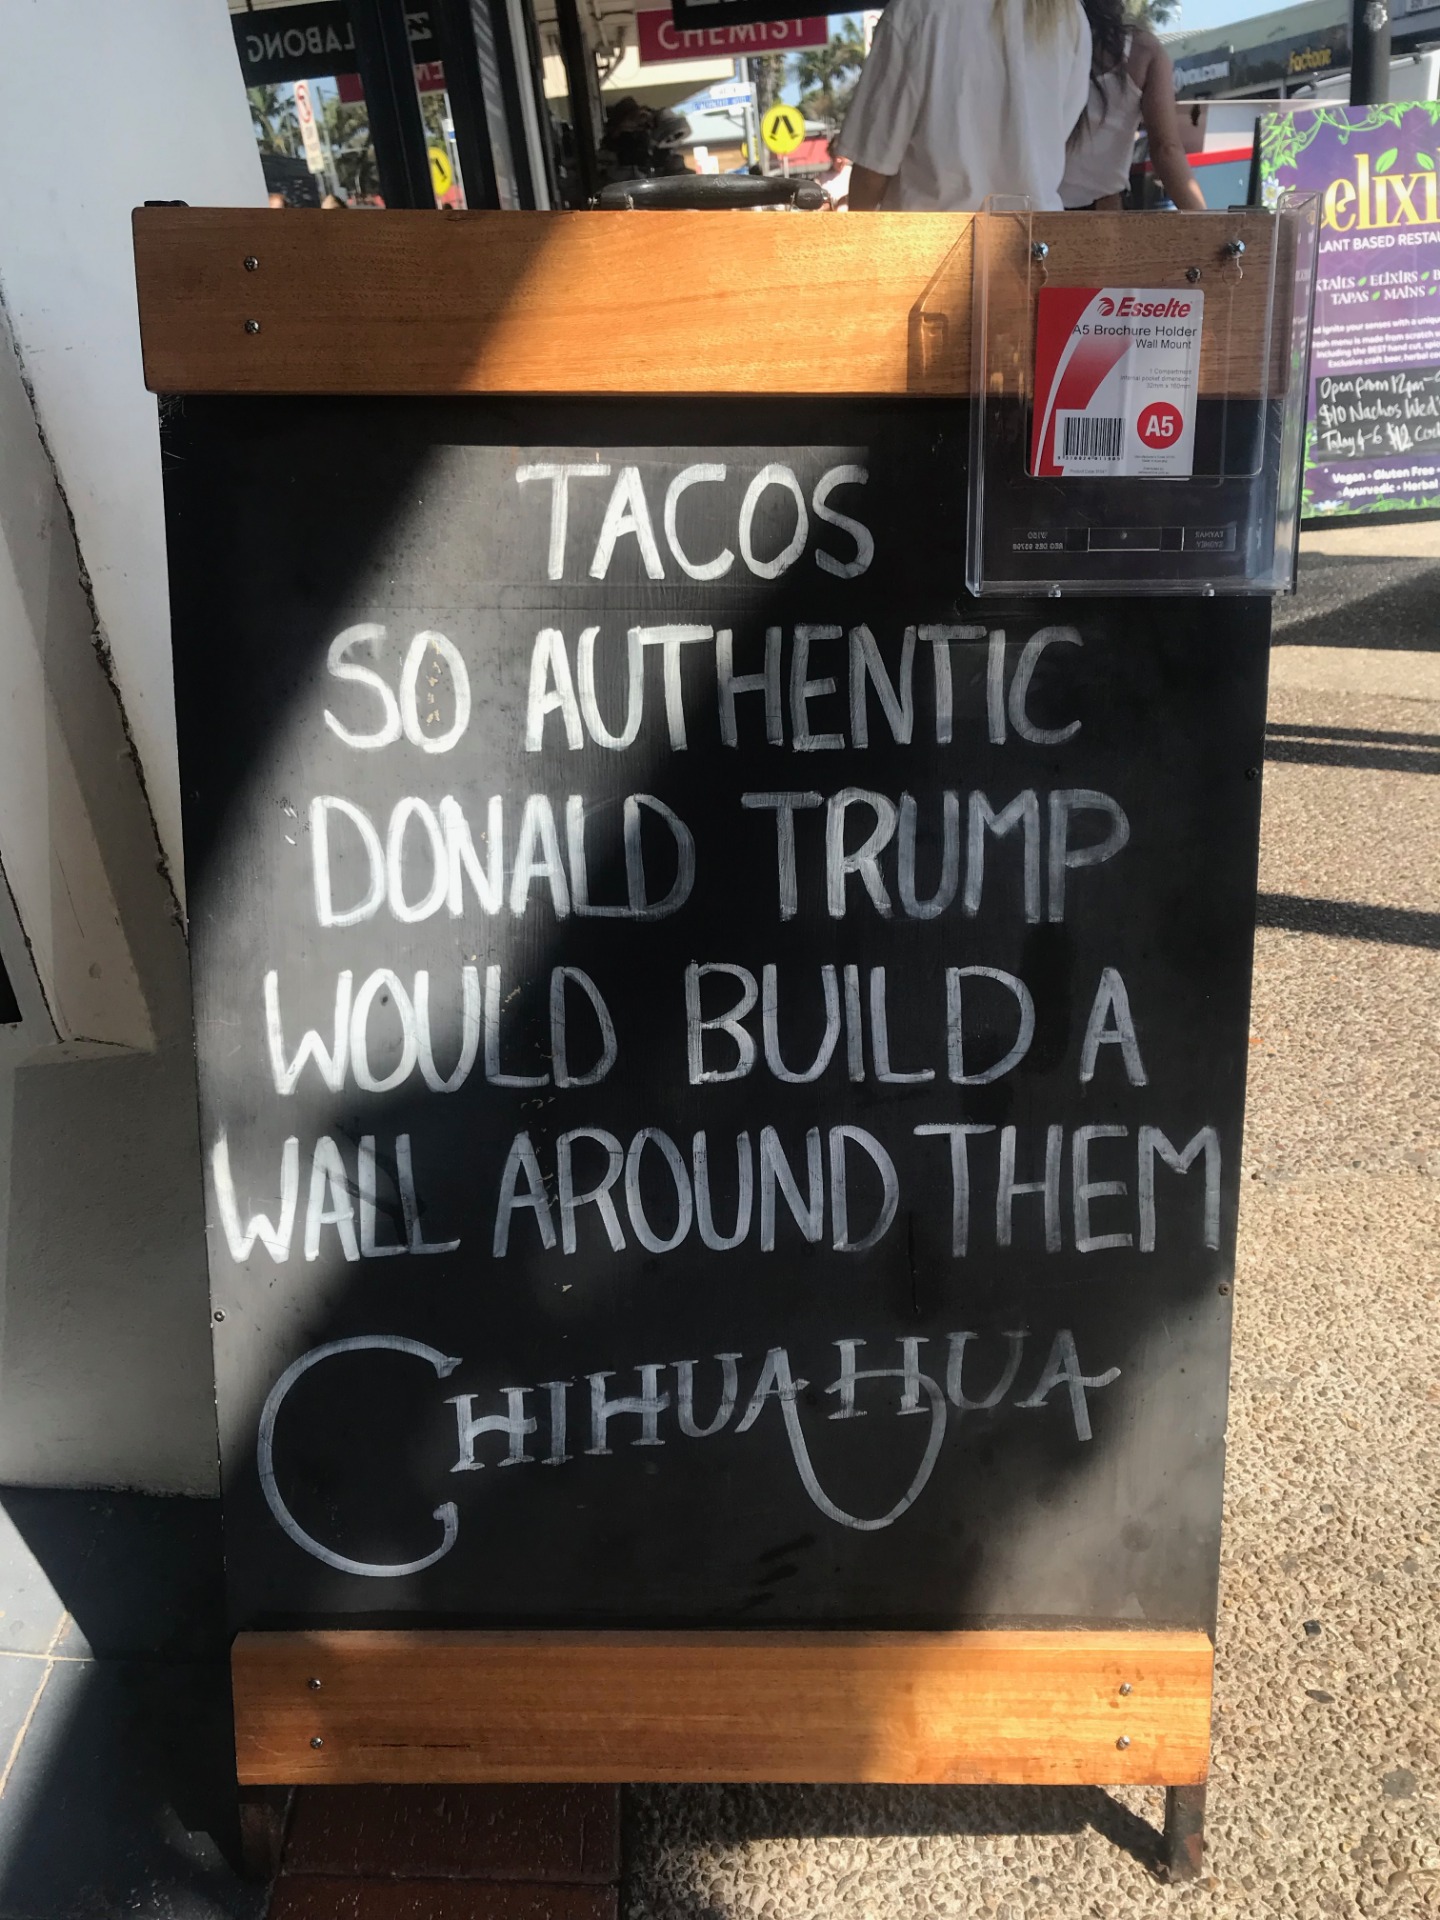 LABONG
CHEMIST
VOLCOM
factorie
elixi
LANT BASED RESTAU
KTAILS ELIXIRS B
TAPAS MAINS
Open from 12pm-
$10 Nachos Wed's
Vegan • Gluten Free •
Ayurvedic • Herbal
Esselte
A5 Brochure Holder
Wall Mount
A5
TACOS
SO AUTHENTIC
DONALD TRUMP
WOULD BUILD A
WALL AROUND THEM
CHIHUAHUA